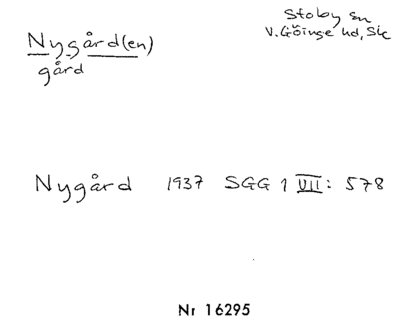 Nygård(en)
gård
Stoby sn
V. Göinge hd, Sk
Nygård 1937 SGG 1 VII: 578
Nr 16295